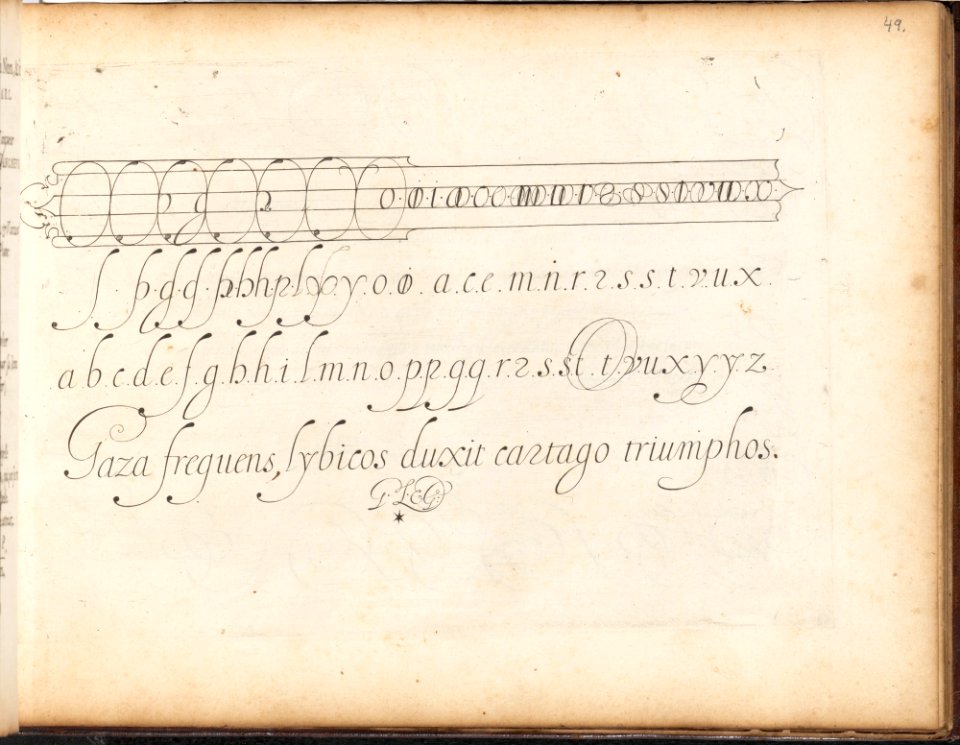 49.
o ı a o o m n r 2 s s t v u x
ſ þ g ſ þ h h p l x y. o. o. a. c. e. m. n. r. 2. s. s. t. v. u. x.
a. b. c. d. e. f. g. h. h. i. l. m. n. o. p p. g q. r. 2. s. s. t. t. v u x y. y. z.
Gaza frequens, lybicos duxit cartago triumphos.
G. L. E G.